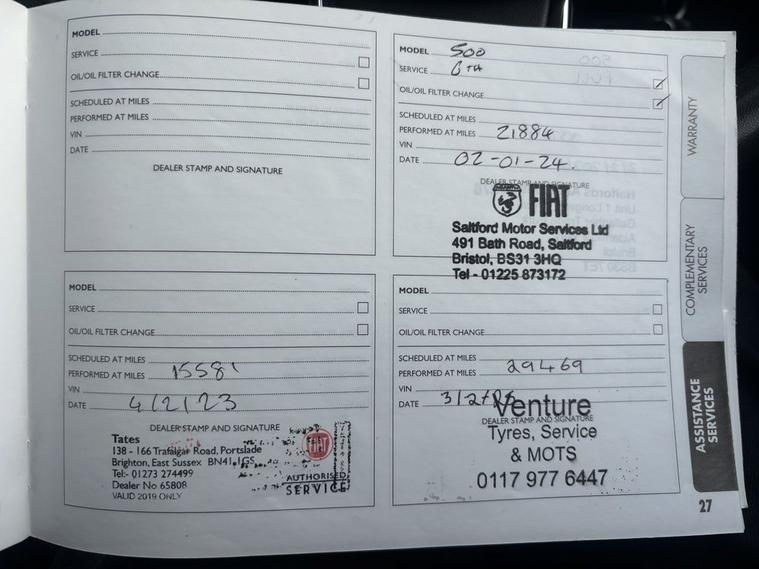 MODEL
SERVICE
OIL/OIL FILTER CHANGE
SCHEDULED AT MILES
PERFORMED AT MILES
VIN
DATE
DEALER STAMP AND SIGNATURE
MODEL 500
SERVICE 6TH
OIL/OIL FILTER CHANGE
SCHEDULED AT MILES
PERFORMED AT MILES 21884
VIN
DATE 02-01-24.
DEALER STAMP AND SIGNATURE
FIAT
Saltford Motor Services Ltd
491 Bath Road, Saltford
Bristol, BS31 3HQ
Tel - 01225 873172
MODEL
SERVICE
OIL/OIL FILTER CHANGE
SCHEDULED AT MILES
PERFORMED AT MILES 15581
VIN
DATE 4/2/23
DEALER STAMP AND SIGNATURE
Tates
138 - 166 Trafalgar Road, Portslade
Brighton, East Sussex BN41 1GS
Tel:- 01273 274499
Dealer No 65808
VALID 2019 ONLY
FIAT
AUTHORISED
SERVICE
MODEL
SERVICE
OIL/OIL FILTER CHANGE
SCHEDULED AT MILES
PERFORMED AT MILES 29469
VIN
DATE
DEALER STAMP AND SIGNATURE
Venture
Tyres, Service
& MOTS
0117 977 6447
WARRANTY
COMPLEMENTARY
SERVICES
ASSISTANCE
SERVICES
27